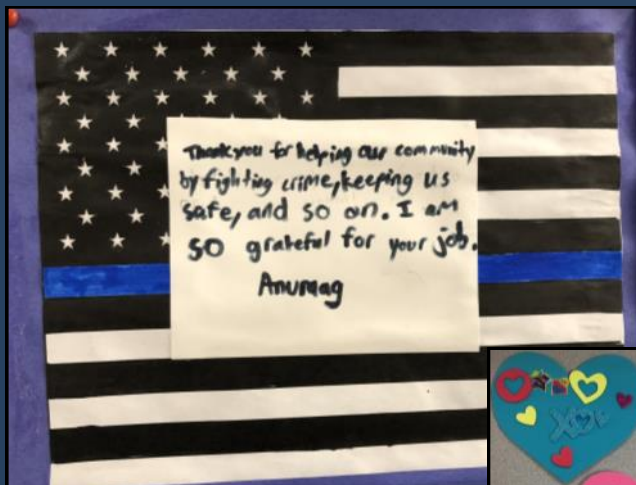 Thank you for helping our community
by fighting crime, keeping us
safe, and so on. I am
so grateful for your job.
Anumag